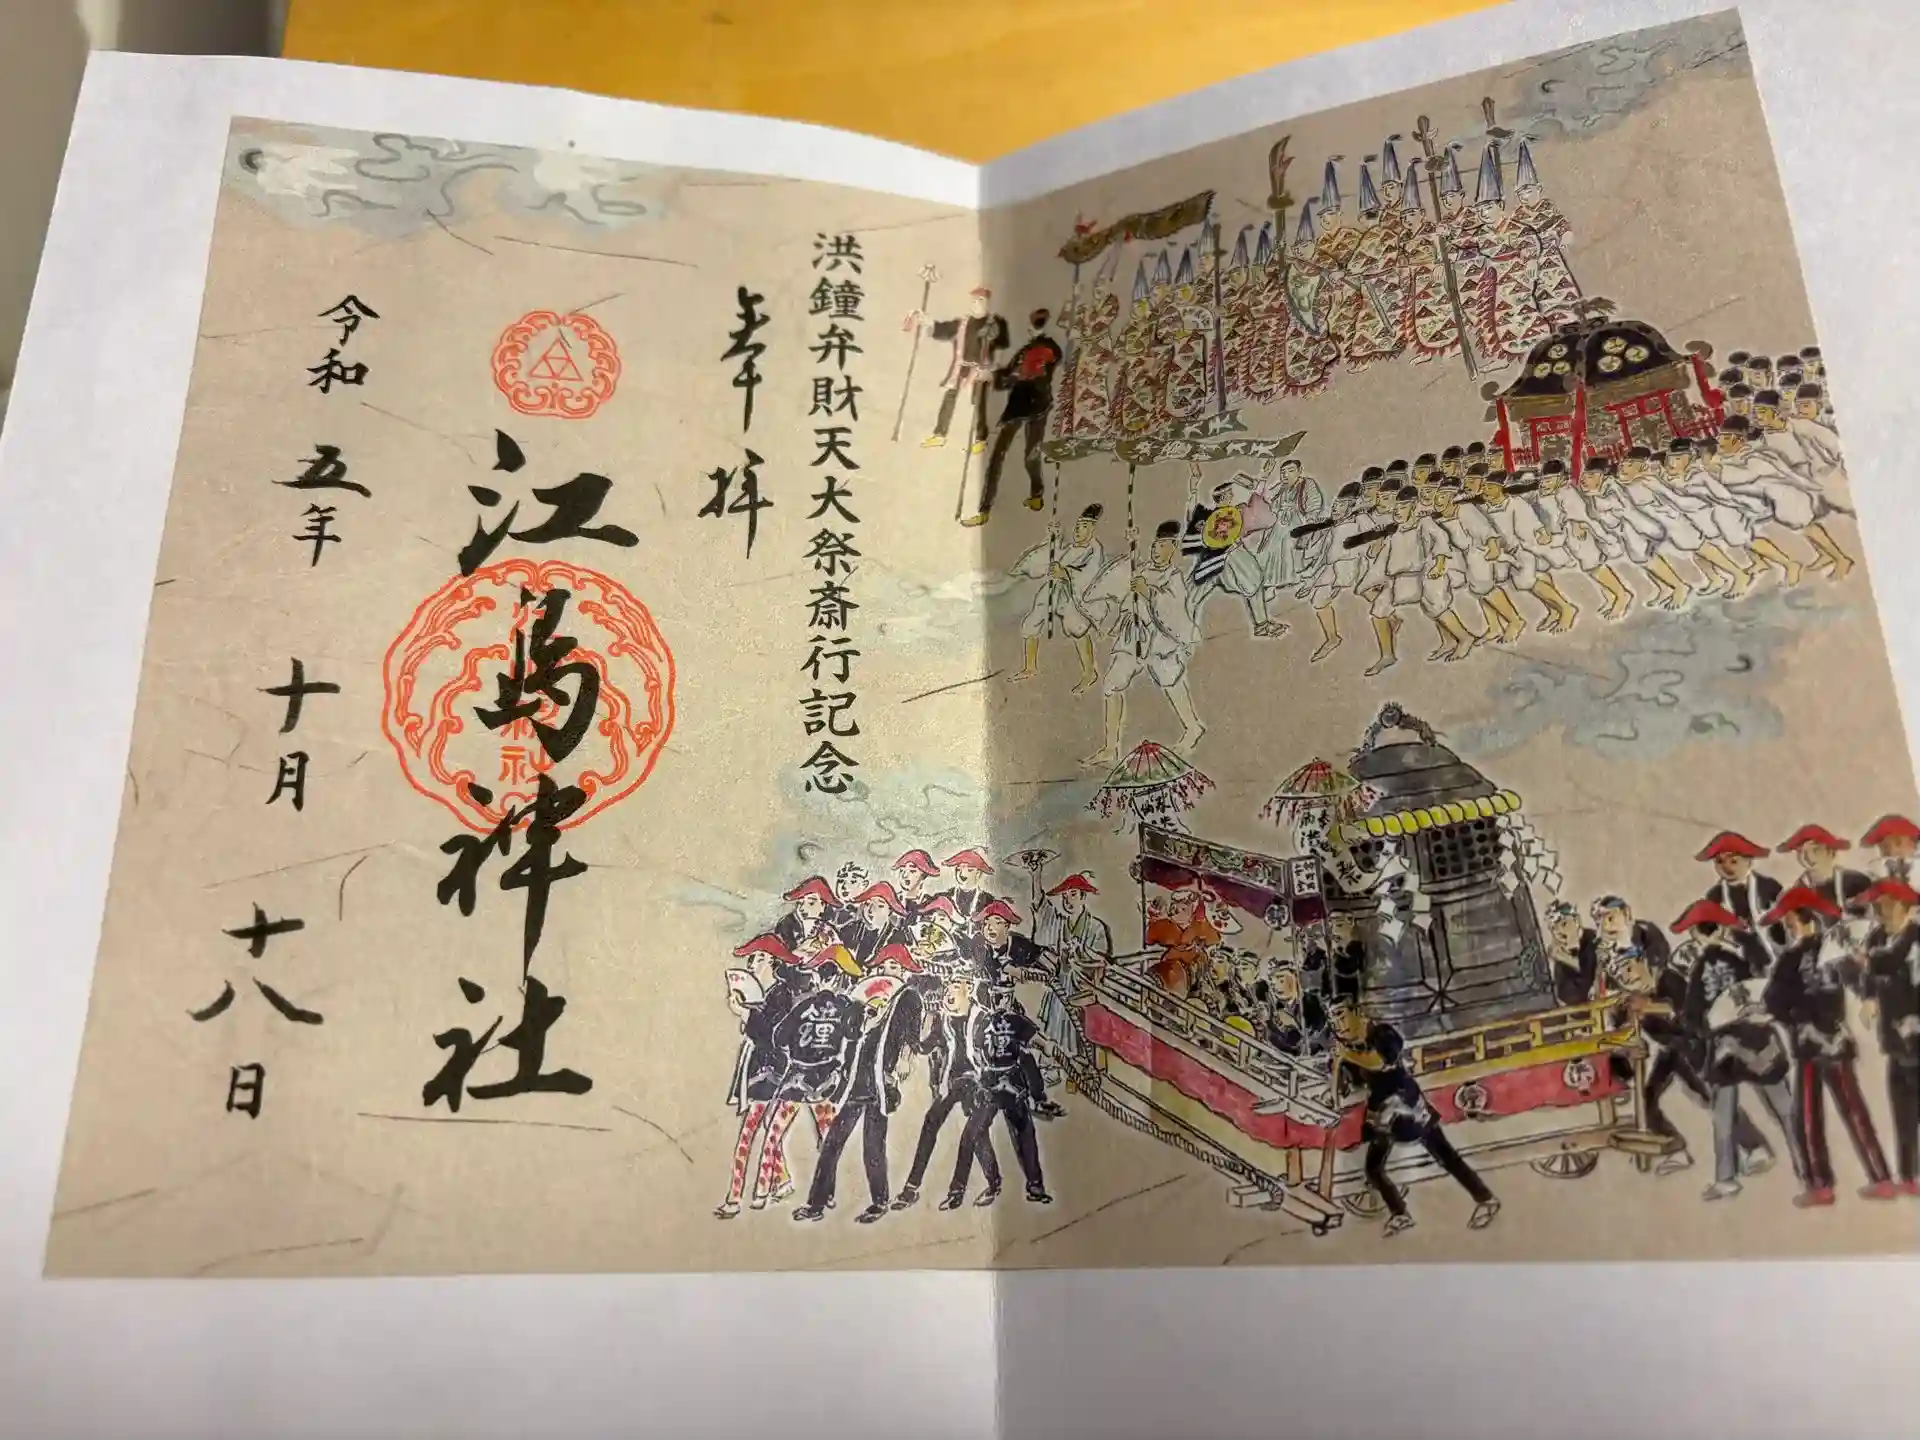 洪鐘弁財天大祭斎行記念
奉拝
江島神社
令和五年十月十八日